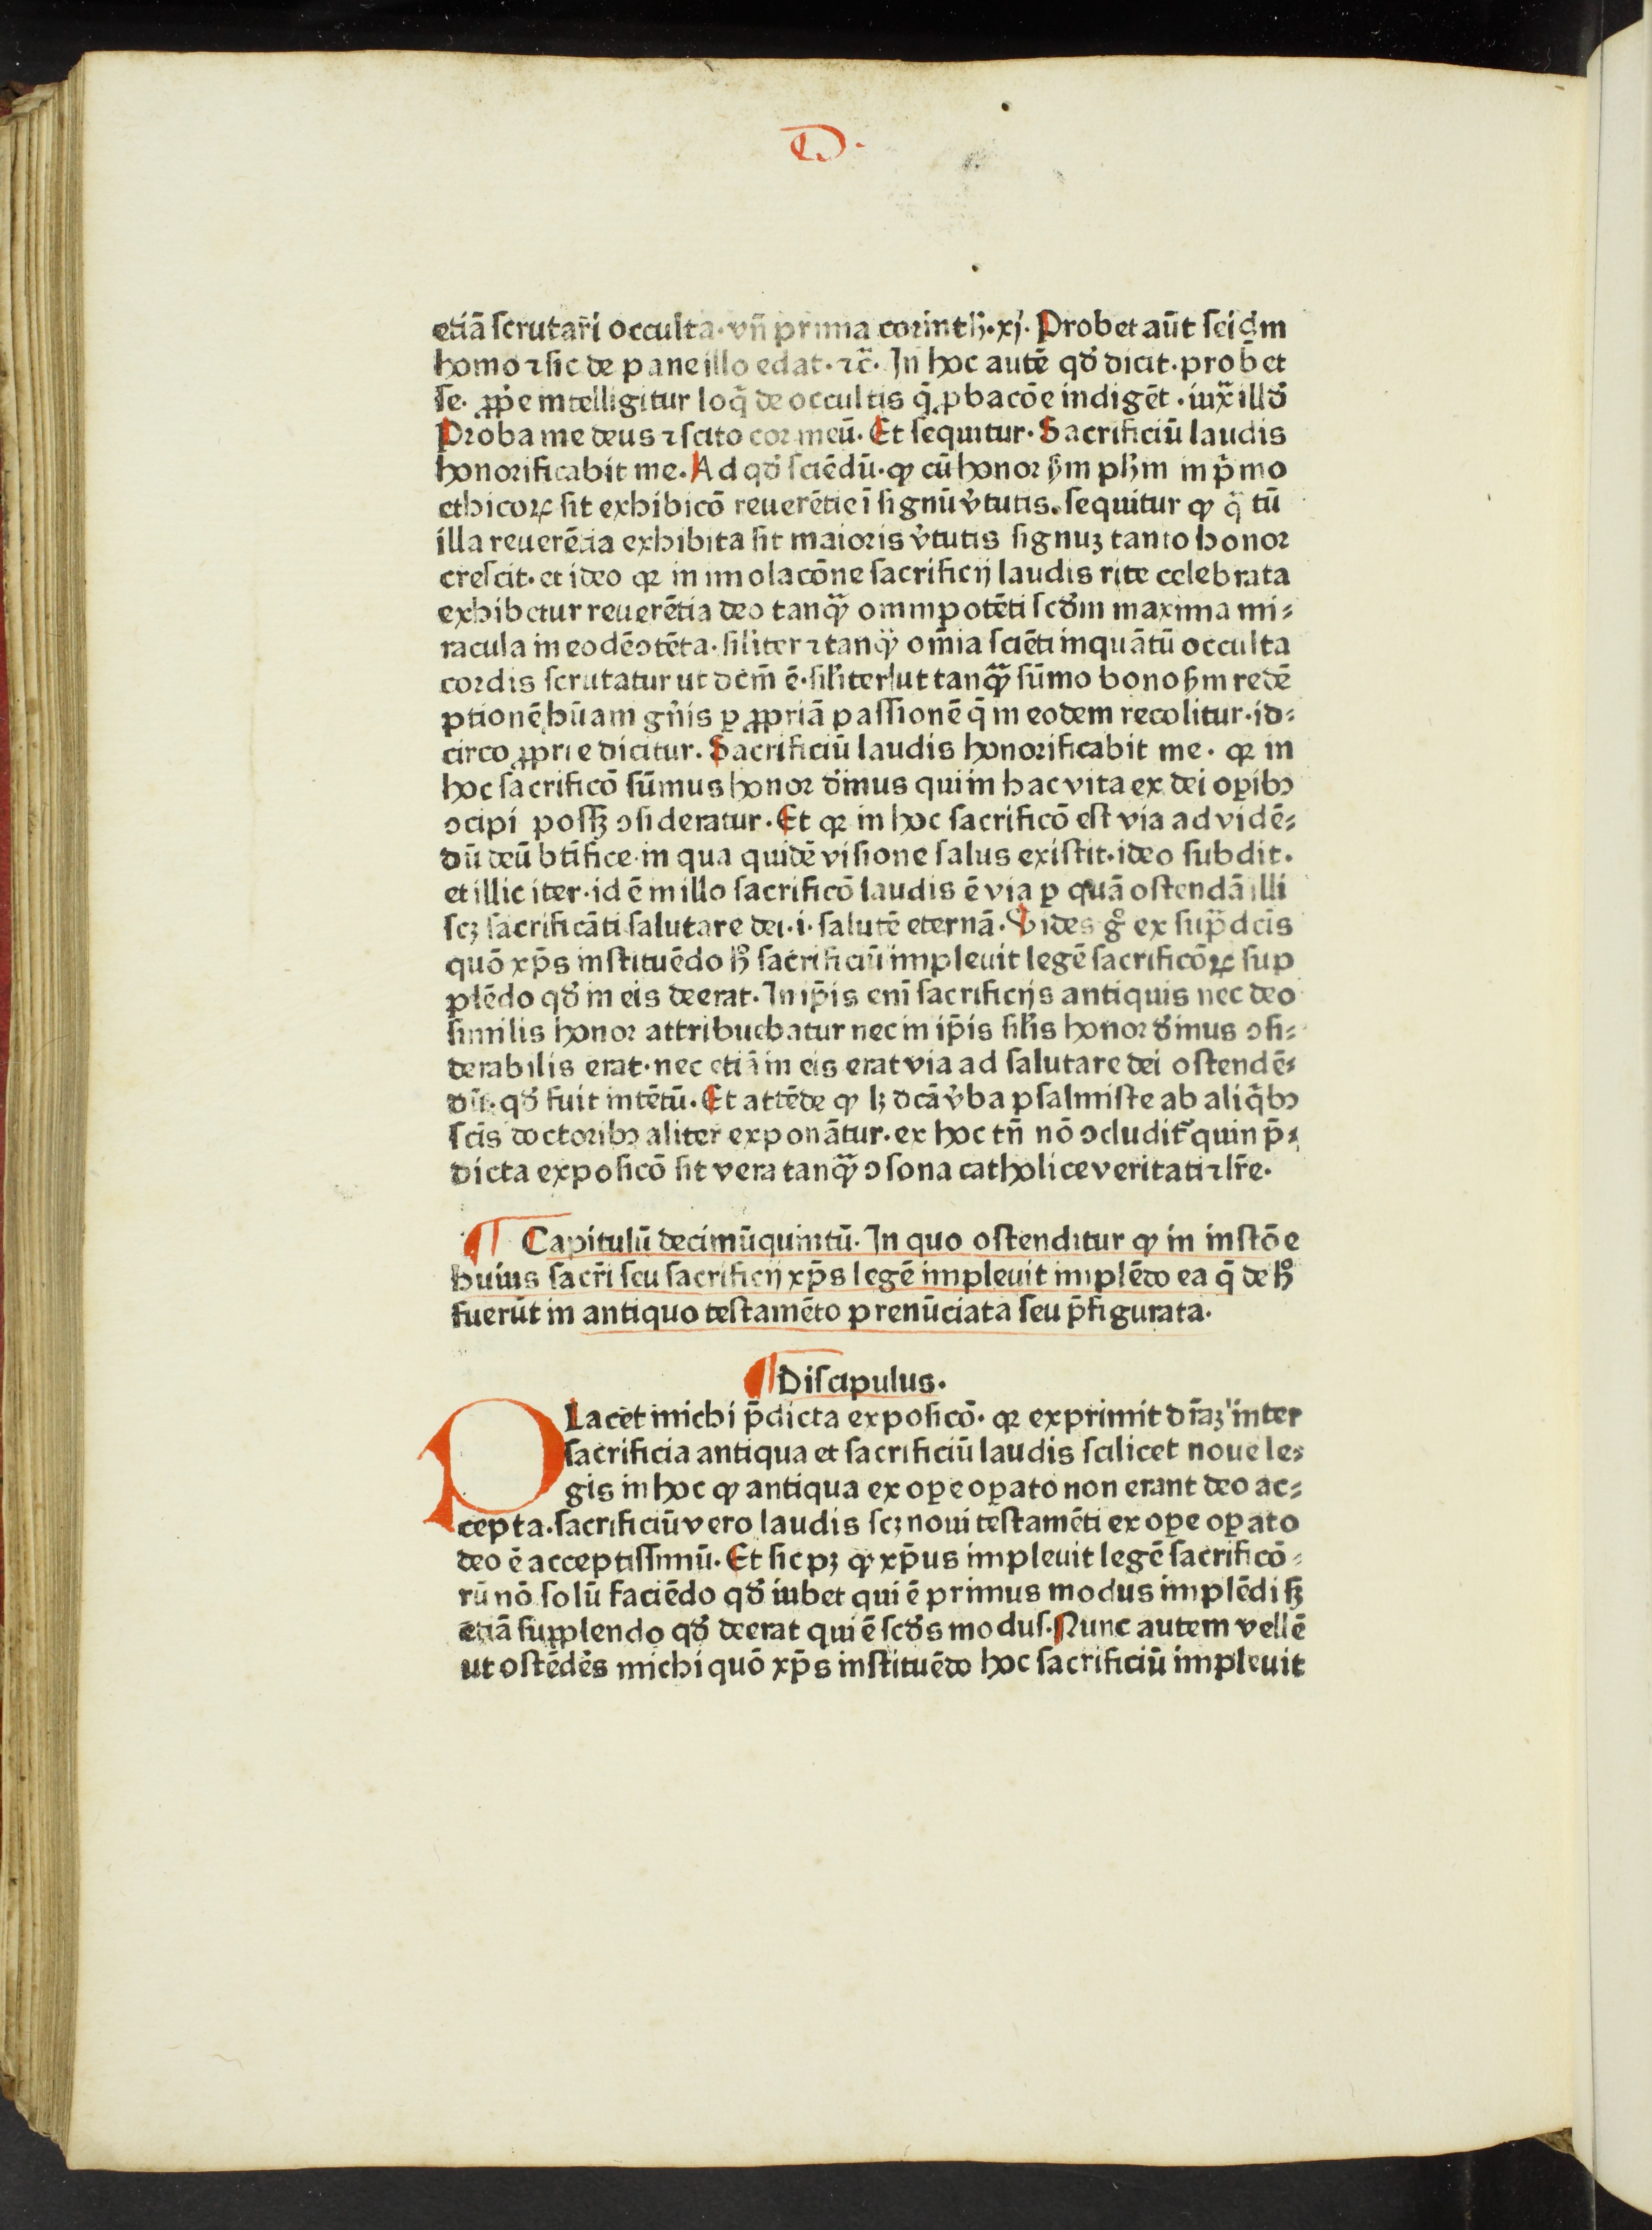 D.
etiā ſcrutari occulta·vn̄ prima corinth̄·xj·Probet aūt ſeidm̄
homo ⁊ ſic de pane illo edat·⁊c̄·In hoc autē qd̓ dicit·probet
ſe· ꝓp̄e intelligitur loq̄ de occultis q̄ ꝓbacōe indigēt·iuxᷓ illd̓
Proba me deus ⁊ ſcito cor meū·Et ſequitur·Sacrificiū laudis
honorificabit me·Ad qd̓ ſciēdū·ꝙ cū honor ẜm ph̄m in p̄mo
ethicoꝝ ſit exhibicō reuerētie ī ſignū v̓tutis·ſequitur ꝙ qᷓtū
illa reuerētia exhibita ſit maioris v̓tutis ſignuꝫ tanto honor
creſcit·et ideo qꝛ in īmolacōne ſacrificij laudis rite celebrata
exhibetur reuerētia deo tanqᷓꝫ omnipotēti ſcd̓m maxima mi⸗
racula in eodē ↄtēta·ſiliter ⁊ tanqᷓꝫ om̄ia ſciēti inquātū occulta
cordis ſcrutatur ut dcm̄ ē·ſiliter ut tanqᷓꝫ ſūmo bono ẜm redē
ptionē hūam gn̄is ꝑ ꝓpriā paſſionē q̄ in eodem recolitur·id⸗
circo ꝓprie dicitur·Sacrificiū laudis honorificabit me·qꝛ in
hoc ſacrificō ſūmus honor d̓inus qui in hac vita ex dei oꝑibꝫ
ↄcipi poſſꝫ ↄſideratur·Et qꝛ in hoc ſacrificō eſt via ad vidē⸗
dū deū btīfice·in qua quidē viſione ſalus exiſtit·ideo ſubdit·
et illic iter·id ē in illo ſacrificō laudis ē via ꝑ quā oſtendā illi
ſcꝫ ſacrificāti ſalutare dei·i·ſalutē eternā·Vides gͦ ex ſupᷓdcīs
quō xp̄s inſtituēdo hͦ ſacrificiū impleuit legē ſacrificōꝝ ſup
plēdo qd̓ in eis deerat·In ip̄is enī ſacrificijs antiquis nec deo
ſimilis honor attribuebatur nec in ip̄is ſil̓is honor d̓inus ↄſi⸗
derabilis erat·nec etiā in eis erat via ad ſalutare dei oſtendē⸗
dū·qd̓ fuit intētū·Et attēde ꝙ lꝫ dcā v̓ba pſalmiſte ab aliq̄bꝫ
ſcīs doctoribꝫ aliter exponātur·ex hoc tn̄ nō ↄcludit᷑ quin p̄⸗
dicta expoſicō ſit vera tanqᷓꝫ ↄſona catholice veritati ⁊ lr̄e·
¶ Capitulū decimūquintū·In quo oſtenditur ꝙ in inſtōe
huius ſacr̄i ſeu ſacrificij xp̄s legē impleuit implēdo ea q̄ de hͦ
fuerūt in antiquo teſtamēto prenūciata ſeu p̄figurata·
¶ Diſcipulus·
PLacet michi p̄dicta expoſicō·qꝛ exprimit dr̄iaꝫ inter
ſacrificia antiqua et ſacrificiū laudis ſcilicet noue le⸗
gis in hoc ꝙ antiqua ex oꝑe oꝑato non erant deo ac⸗
cepta·ſacrificiū vero laudis ſcꝫ noui teſtamēti ex oꝑe oꝑato
deo ē acceptiſſimū·Et ſic pꝫ ꝙ xp̄us impleuit legē ſacrificō⸗
rū nō ſolū faciēdo qd̓ iubet qui ē primus modus implēdi ſꝫ
etiā ſupplendo qd̓ deerat qui ē ſcd̓s modus·Nunc autem vellē
ut oſtēdēs michi quō xp̄s inſtituēdo hoc ſacrificiū impleuit